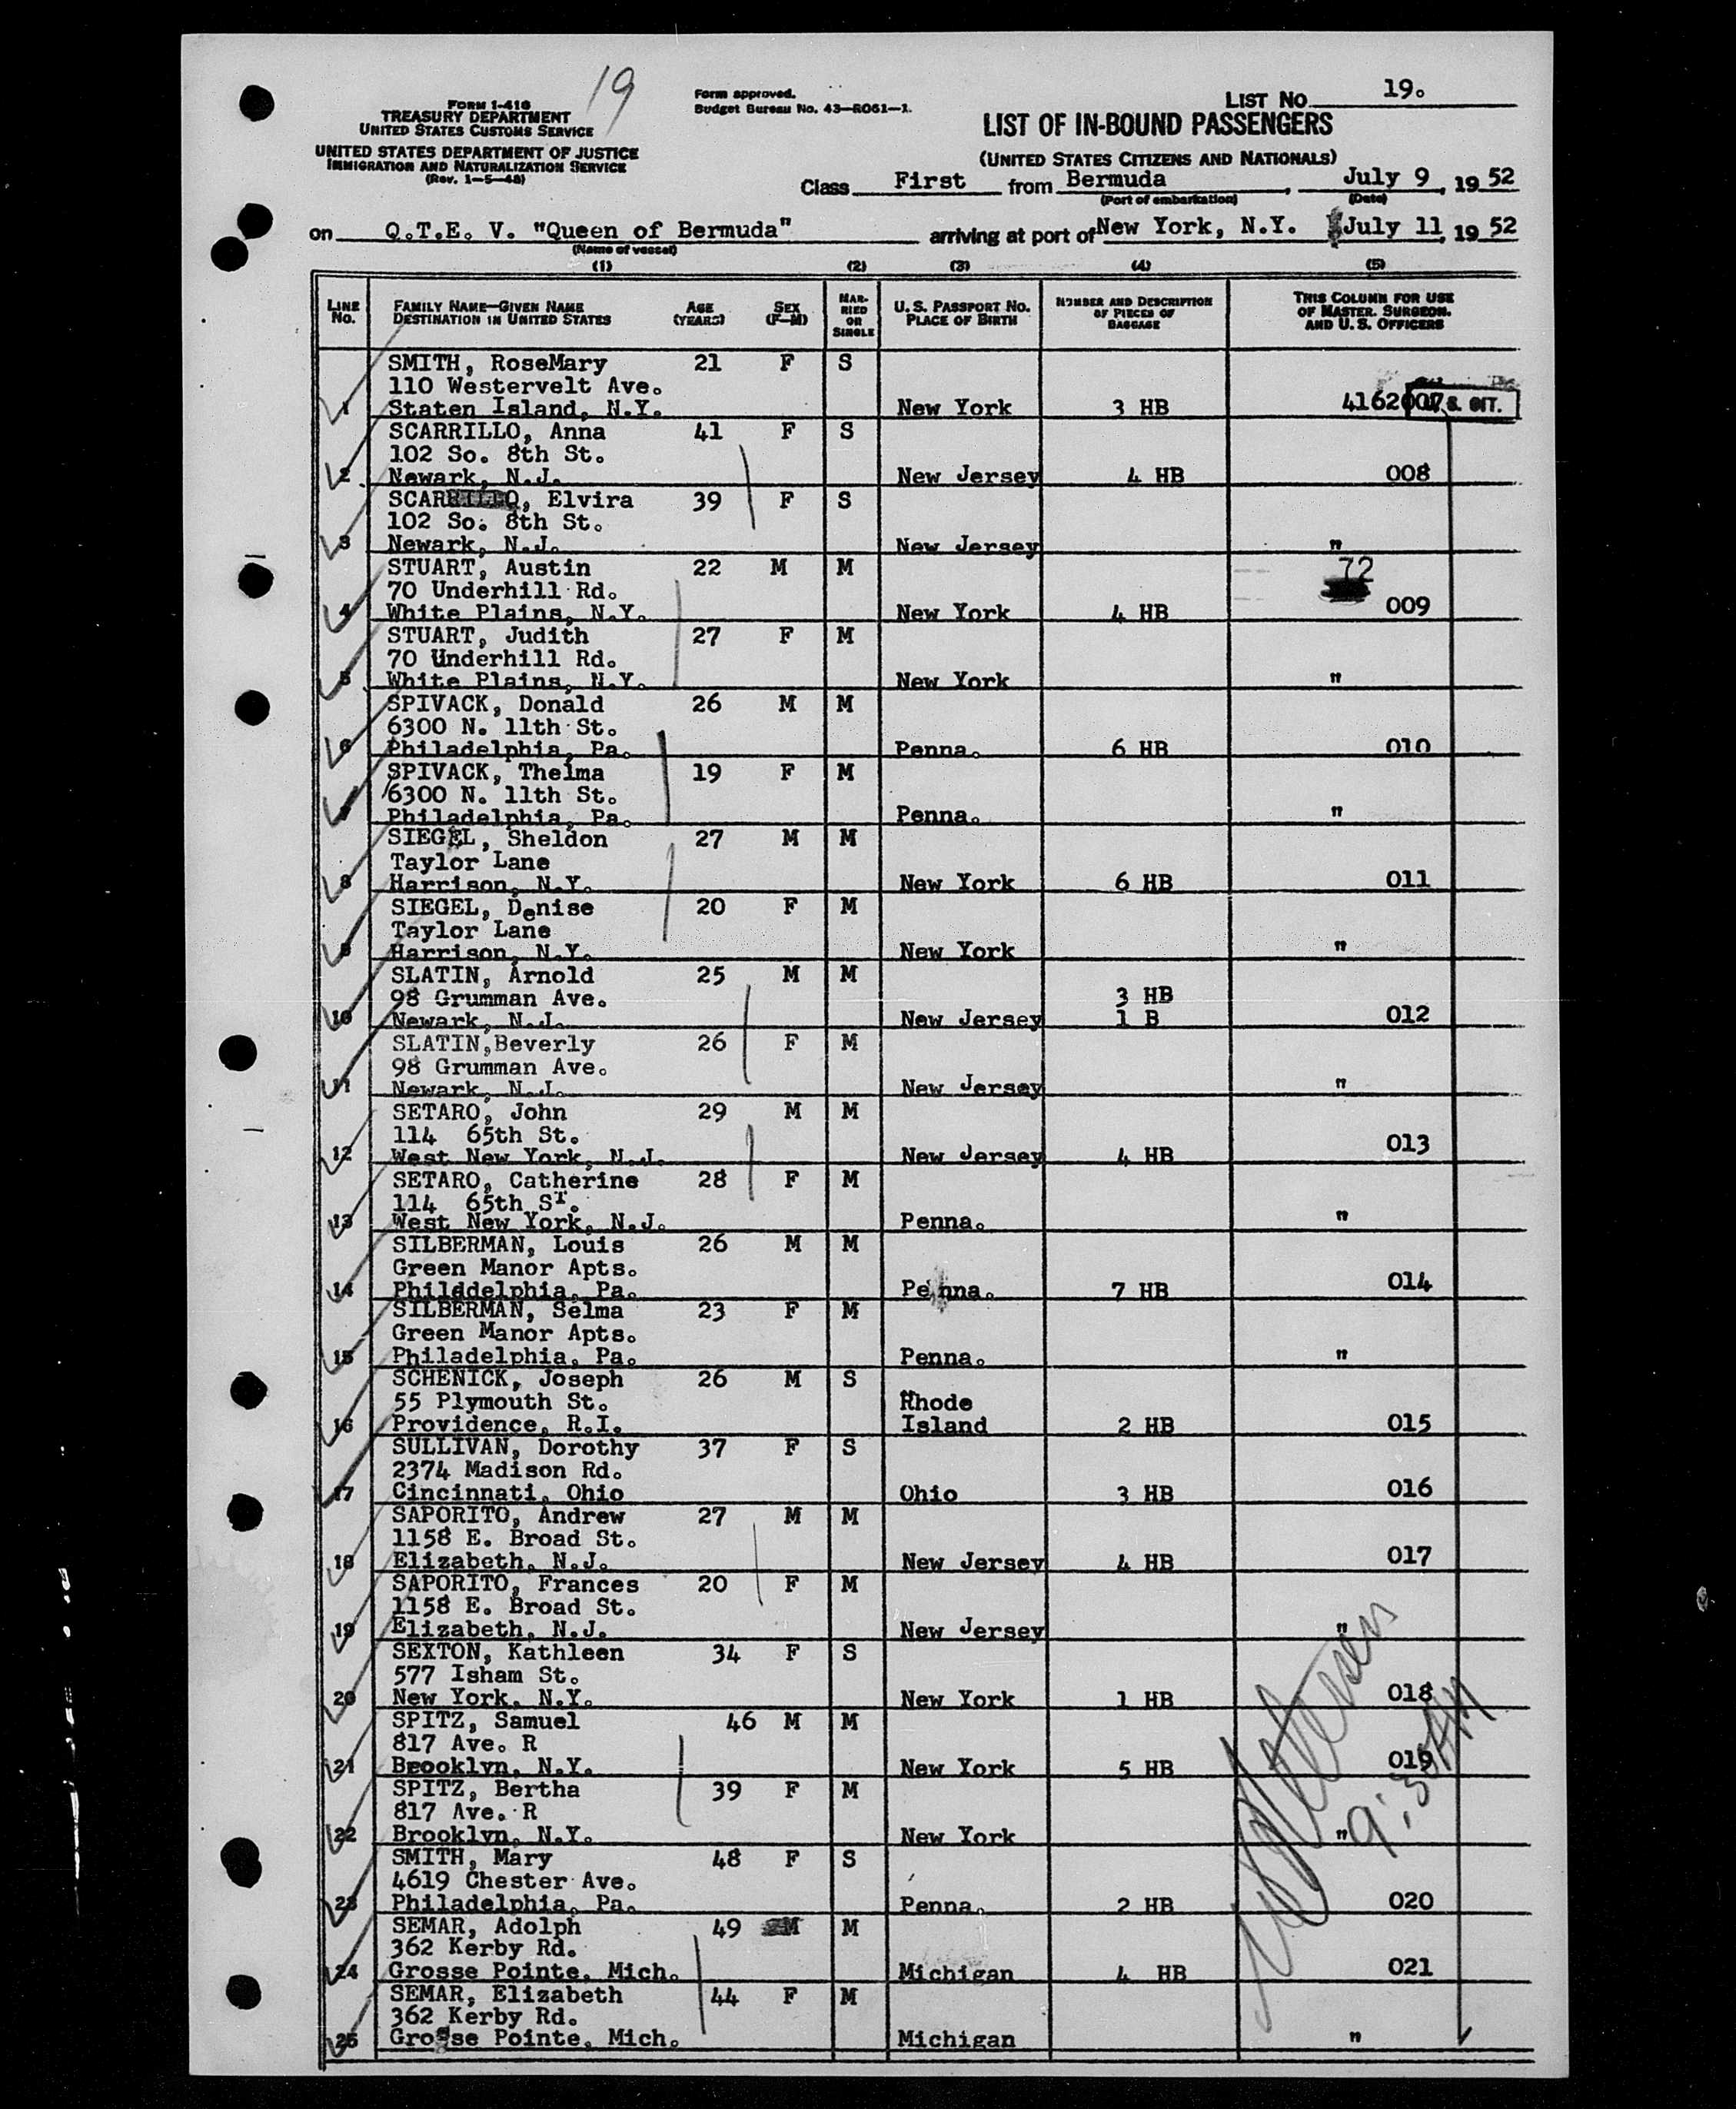 19
FORM I-416
TREASURY DEPARTMENT
UNITED STATES CUSTOMS SERVICE
UNITED STATES DEPARTMENT OF JUSTICE
IMMIGRATION AND NATURALIZATION SERVICE
(Rev. 1-5-48)
Form approved.
Budget Bureau No. 43-R061-1.
LIST NO. 19.
LIST OF IN-BOUND PASSENGERS
(UNITED STATES CITIZENS AND NATIONALS)
Class First from Bermuda, July 9, 19 52
(Port of embarkation) (Date)
on Q.T.E. V. "Queen of Bermuda" arriving at port of New York, N.Y. July 11, 19 52
(Name of vessel)
(1) (2) (3) (4) (5)
LINE No. FAMILY NAME—GIVEN NAME DESTINATION IN UNITED STATES AGE (YEARS) SEX (F-M) MARRIED OR SINGLE U. S. PASSPORT NO. PLACE OF BIRTH NUMBER AND DESCRIPTION OF PIECES OF BAGGAGE THIS COLUMN FOR USE OF MASTER, SURGEON, AND U. S. OFFICERS
SMITH, RoseMary 21 F S
110 Westervelt Ave.
1 Staten Island, N.Y. New York 3 HB 4162007 U. S. CIT.
SCARRILLO, Anna 41 F S
102 So. 8th St.
2 Newark, N.J. New Jersey 4 HB 008
SCARRILLO, Elvira 39 F S
102 So. 8th St.
3 Newark, N.J. New Jersey "
STUART, Austin 22 M M 72
70 Underhill Rd.
4 White Plains, N.Y. New York 4 HB 009
STUART, Judith 27 F M
70 Underhill Rd.
5 White Plains, N.Y. New York "
SPIVACK, Donald 26 M M
6300 N. 11th St.
6 Philadelphia, Pa. Penna. 6 HB 010
SPIVACK, Thelma 19 F M
6300 N. 11th St.
7 Philadelphia, Pa. Penna. "
SIEGEL, Sheldon 27 M M
Taylor Lane
8 Harrison, N.Y. New York 6 HB 011
SIEGEL, Denise 20 F M
Taylor Lane
9 Harrison, N.Y. New York "
SLATIN, Arnold 25 M M
98 Grumman Ave. 3 HB
10 Newark, N.J. New Jersey 1 B 012
SLATIN,Beverly 26 F M
98 Grumman Ave.
11 Newark, N.J. New Jersey "
SETARO, John 29 M M
114 65th St.
12 West New York, N.J. New Jersey 4 HB 013
SETARO, Catherine 28 F M
114 65th ST.
13 West New York, N.J. Penna. "
SILBERMAN, Louis 26 M M
Green Manor Apts.
14 Philddelphia, Pa. Penna. 7 HB 014
SILBERMAN, Selma 23 F M
Green Manor Apts.
15 Philadelphia, Pa. Penna. "
SCHENICK, Joseph 26 M S
55 Plymouth St. Rhode
16 Providence, R.I. Island 2 HB 015
SULLIVAN, Dorothy 37 F S
2374 Madison Rd.
17 Cincinnati, Ohio Ohio 3 HB 016
SAPORITO, Andrew 27 M M
1158 E. Broad St.
18 Elizabeth, N.J. New Jersey 4 HB 017
SAPORITO, Frances 20 F M
1158 E. Broad St.
19 Elizabeth, N.J. New Jersey "
SEXTON, Kathleen 34 F S
577 Isham St.
20 New York, N.Y. New York 1 HB 018
SPITZ, Samuel 46 M M
817 Ave. R
21 Brooklyn, N.Y. New York 5 HB 019
SPITZ, Bertha 39 F M
817 Ave. R
22 Brooklyn, N.Y. New York "
9:30AM
SMITH, Mary 48 F S
4619 Chester Ave.
23 Philadelphia, Pa. Penna. 2 HB 020
SEMAR, Adolph 49 M M
362 Kerby Rd.
24 Grosse Pointe, Mich. Michigan 4 HB 021
SEMAR, Elizabeth 44 F M
362 Kerby Rd.
25 Grosse Pointe, Mich. Michigan "